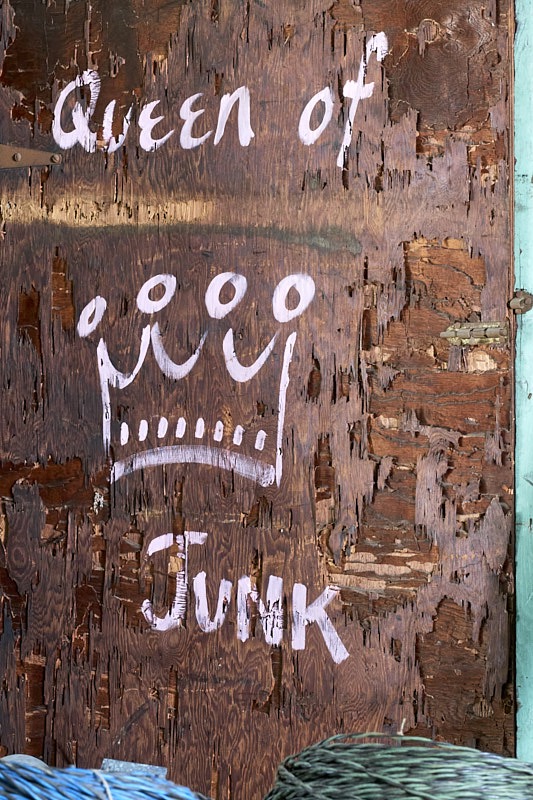 Queen of
Junk